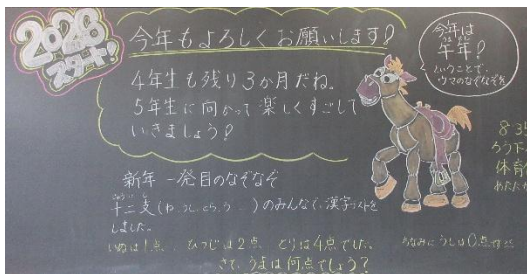 2026
スタート!
今年もよろしくお願いします!
4年生も残り3か月だね。
5年生に向かって楽しくすごして
いきましょう?
今年は
午年?
うまどし
ということで、
ウマのなぞなぞを
新年一発目のなぞなぞ
十二支(ね、うし、とら、う...)のみんなで、漢字テストを
じゅうにし
しました。
いぬは1点、ひつじは2点、とりは4点でした。
さて、うまは何点でしょう?
ちなみにうしは0点
8:35
ろう下
体育